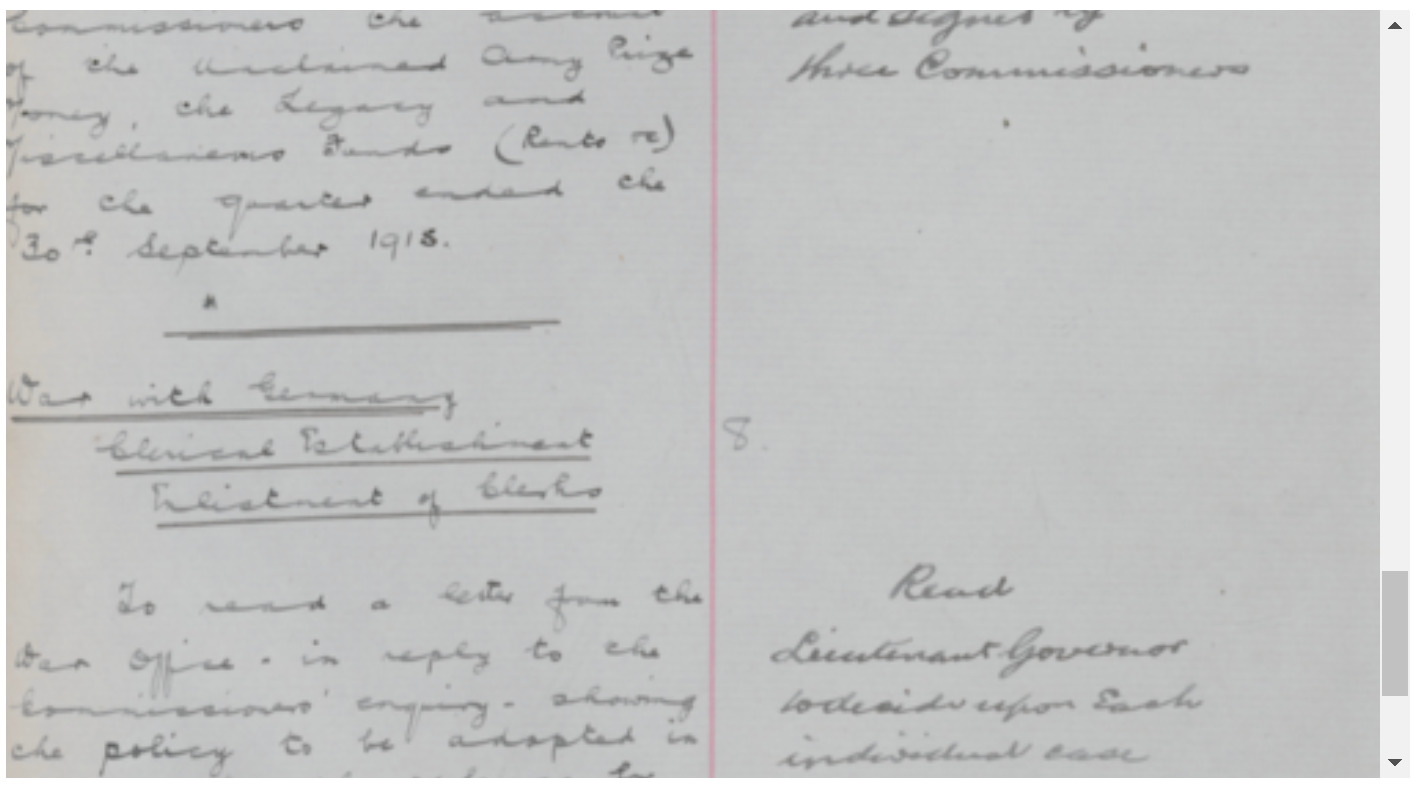 Commissioners the
of the Unclaimed Army Prize
Money, the Legacy and
Miscellaneous Funds (Rents &c)
for the quarter ended the
30th September 1915.
"
War with Germany
Clerical Establishment
Enlistment of Clerks
To read a letter from the
War Office - in reply to the
Commissioners' enquiry - showing
the policy to be adopted in
and signed by
three Commissioners
8.
Read
Lieutenant Governor
to decide upon Each
individual case